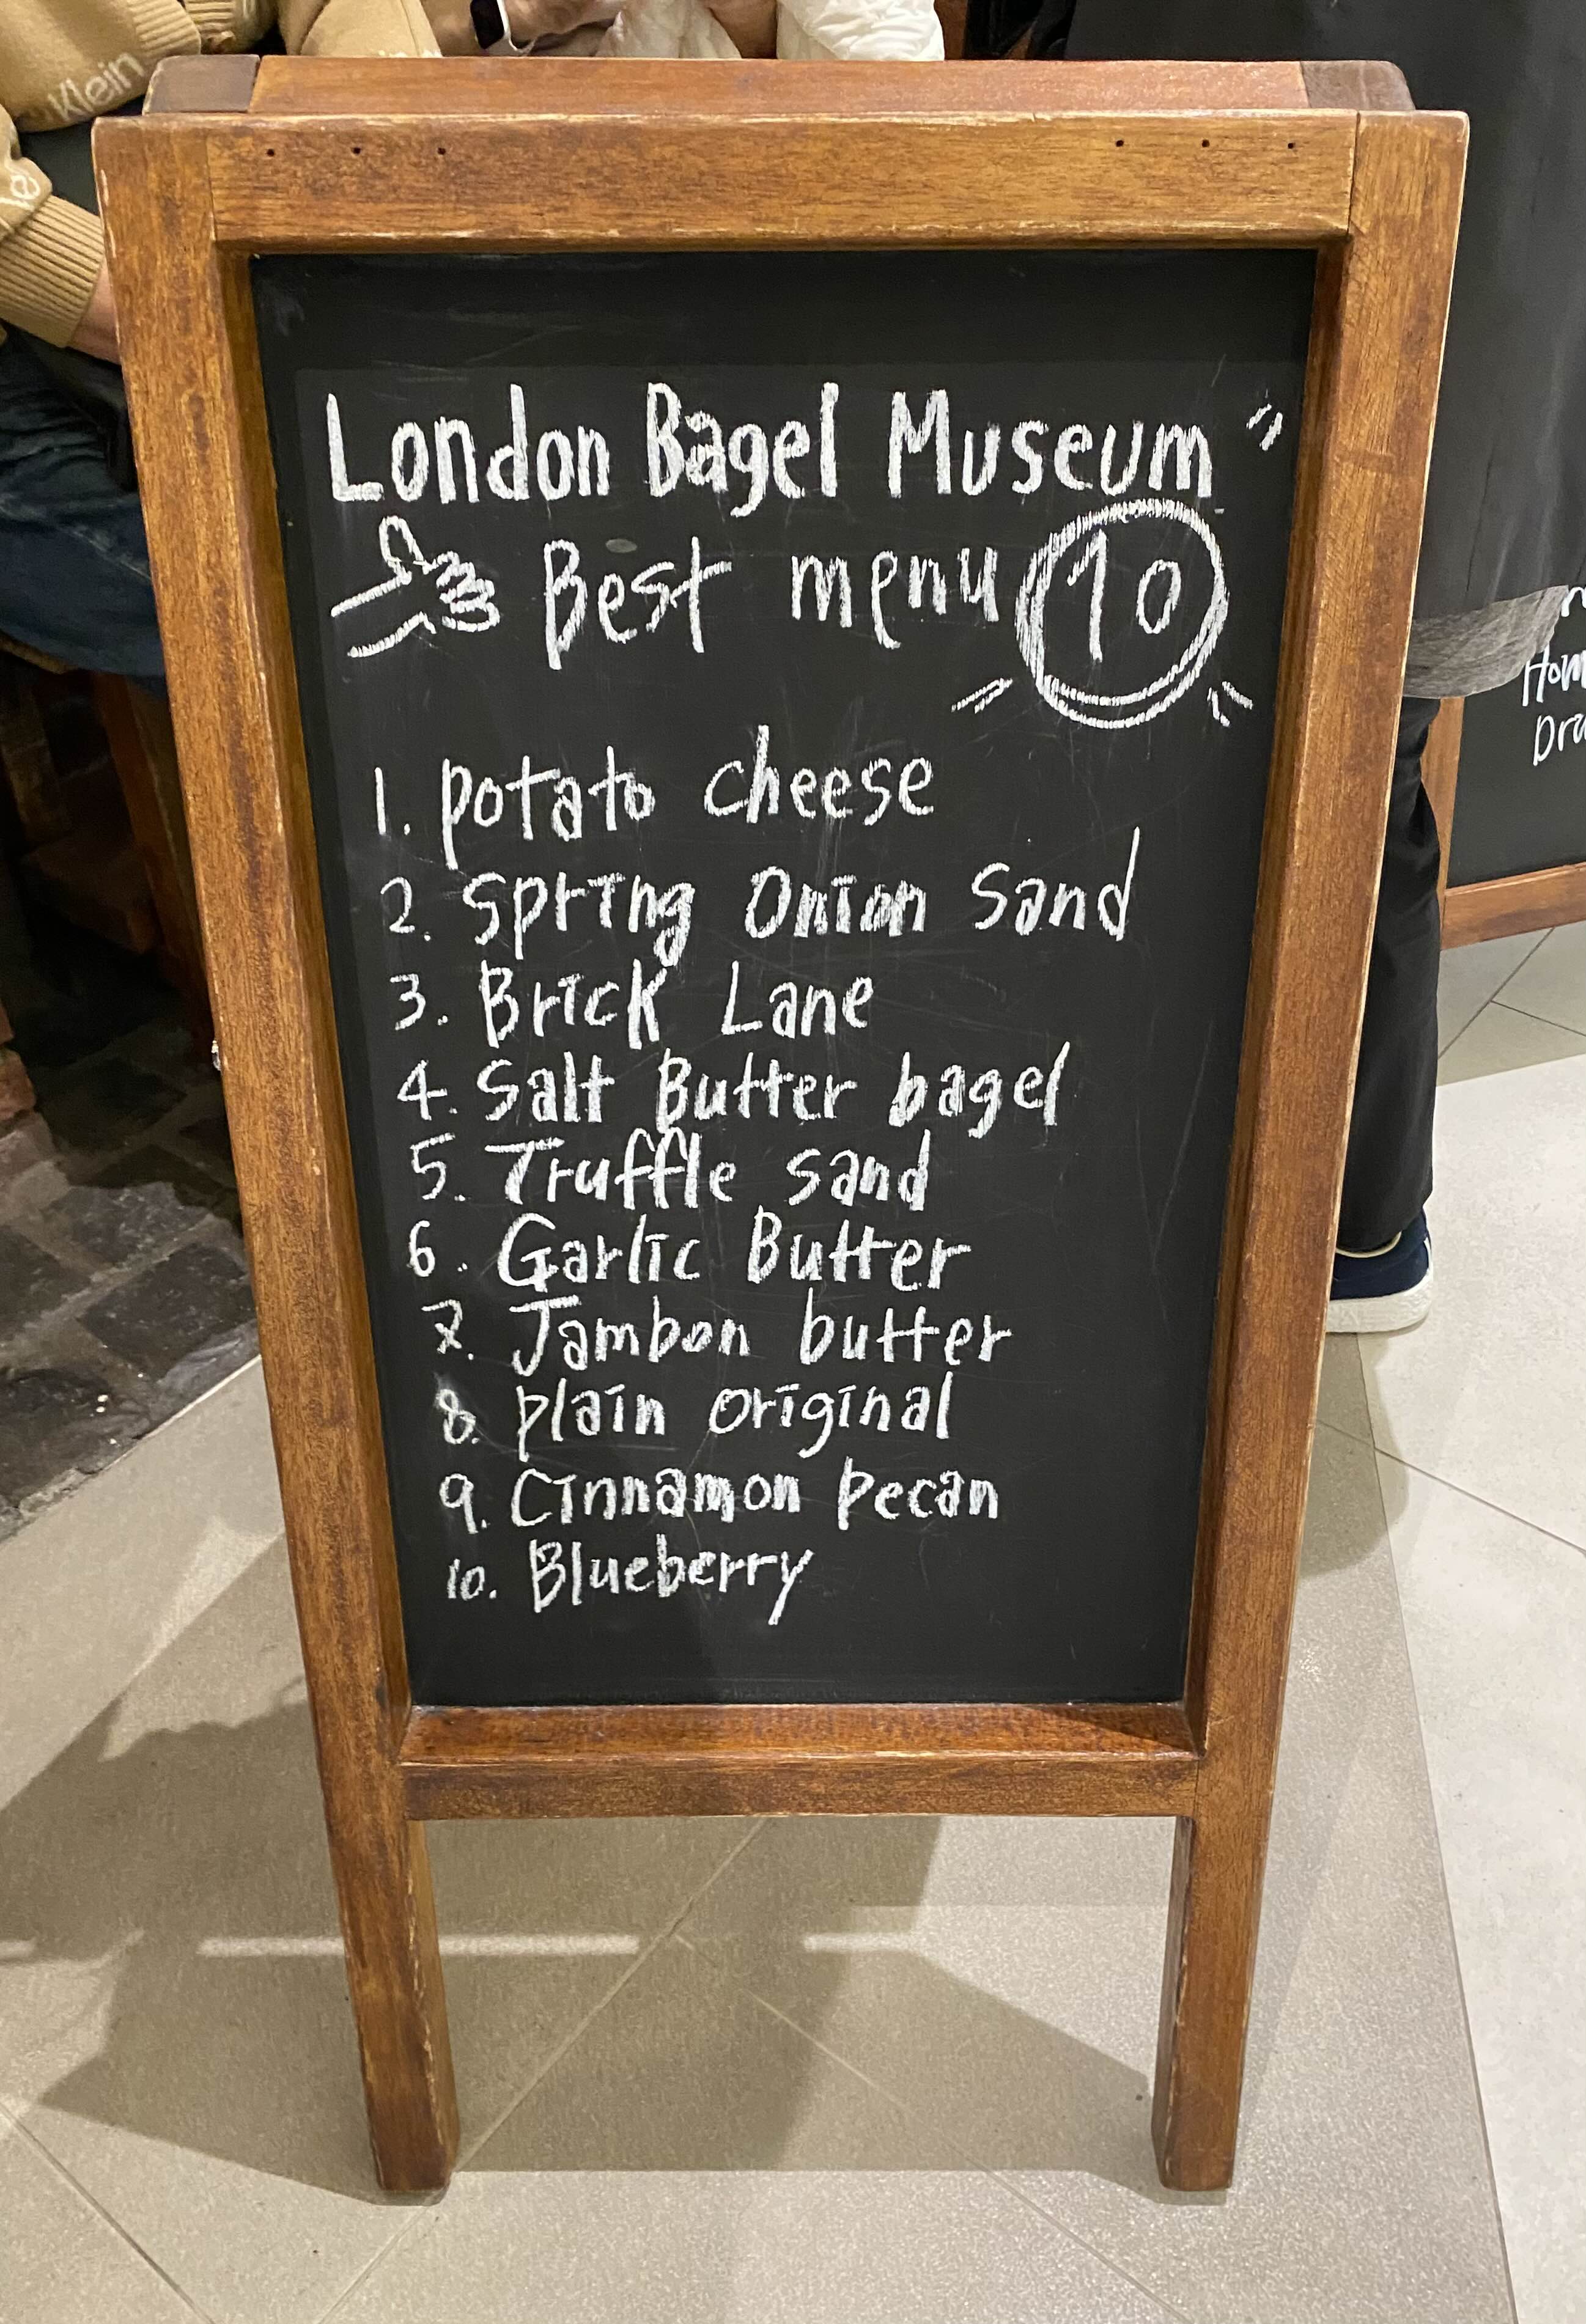 Klein
London Bagel Museum
Best menu 10
1. potato cheese
2. Spring Onion Sand
3. Brick Lane
4. Salt Butter bagel
5. Truffle sand
6. Garlic Butter
7. Jambon butter
8. plain original
9. Cinnamon pecan
10. Blueberry